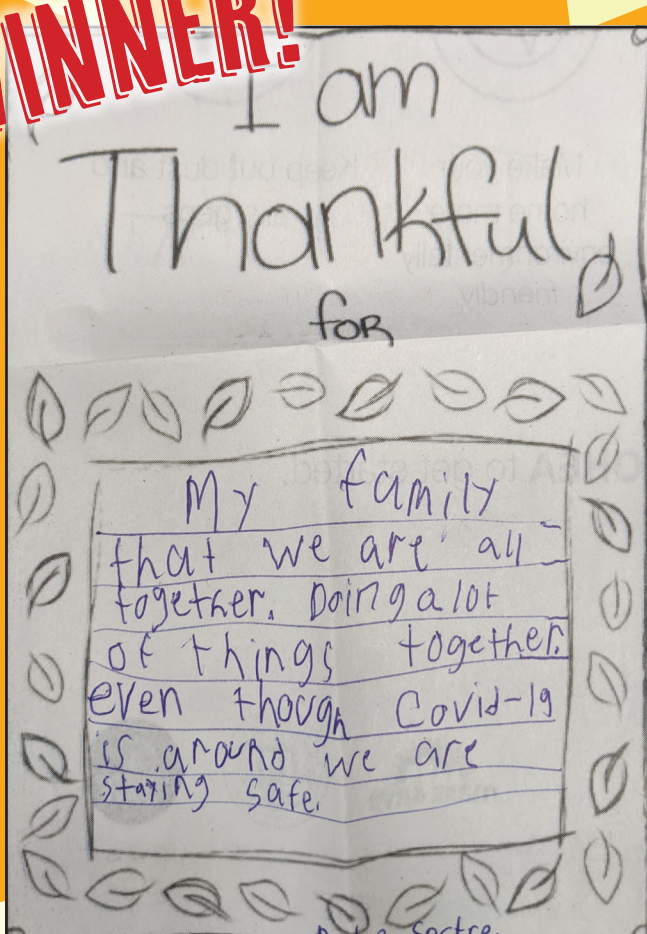 INNER!
I am
Thankful
for
My family
that we are all
together. Doing a lot
of things together.
even though Covid-19
is around we are
staying safe.